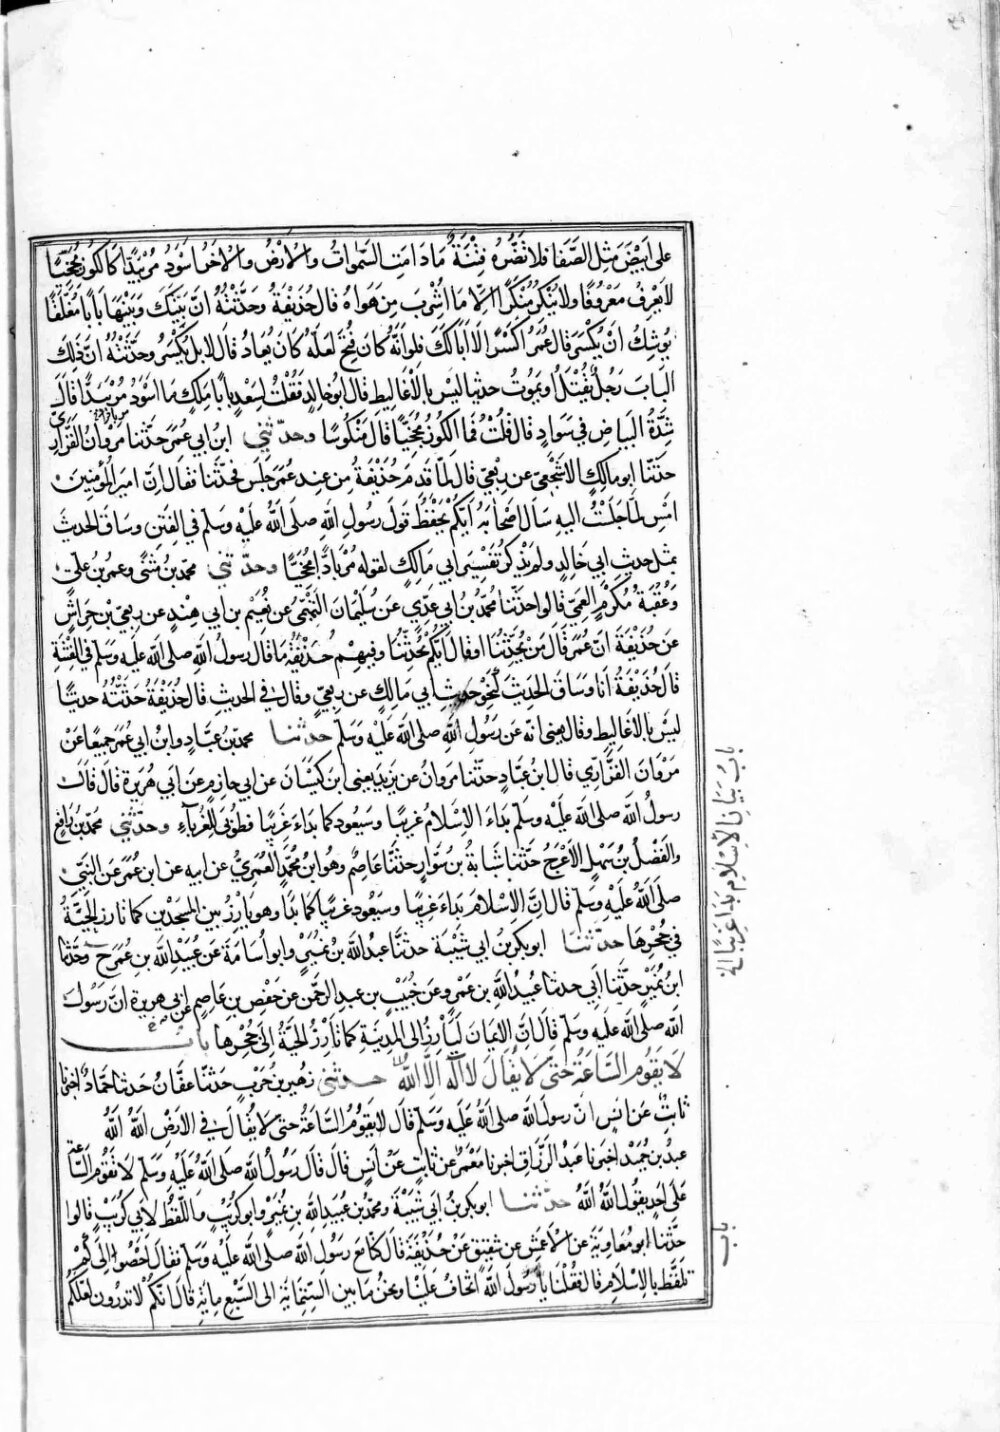 على ابيض مثل الصفا فلا تضره فتنة ما دامت السموات والارض والاخر اسود مربدا كالكوز مجخيا
لا يعرف معروفا ولا ينكر منكرا الا ما اشرب من هواه قال حذيفة وحدثته ان بينك وبينها بابا مغلقا
يوشك ان يكسر قال عمر اكسرا لا ابا لك فلو انه كان فتح لعله كان يعاد قال لا بل يكسر وحدثته ان ذلك
الباب رجل يقتل او يموت حديثا ليس بالاغاليط قال ابو خالد فقلت لسعد يا با مالك ما اسود مربدا قال
شدة البياض في سواد قال قلت فما الكوز مجخيا قال منكوسا وحدثني ابن ابي عمر حدثنا مروان الفزاري
حدثنا ابو مالك الاشجعي عن ربعي قال لما قدم حذيفة من عند عمر جلس فحدثنا فقال ان امير المؤمنين
امس لما جلست اليه سال اصحابه ايكم يحفظ قول رسول الله صلى الله عليه وسلم في الفتن وساق الحديث
بمثل حديث ابي خالد ولم يذكر تفسير ابي مالك لقوله مربادا مجخيا وحدثني محمد بن مثنى وعمرو بن علي
وعقبة مكرم العمي قالوا حدثنا محمد بن ابي عدي عن سليمان التيمي عن نعيم بن ابي هند عن ربعي بن حراش
عن حذيفة ان عمر قال من يحدثنا او قال ايكم يحدثنا وفيهم حذيفة ما قال رسول الله صلى الله عليه وسلم في الفتنة
قال حذيفة انا وساق الحديث كنحو حديث ابي مالك عن ربعي وقال في الحديث قال حذيفة حدثته حديثا
ليس بالاغاليط وقال يعني انه عن رسول الله صلى الله عليه وسلم حدثنا محمد بن عباد وابن ابي عمر جميعا عن
مروان الفزاري قال ابن عباد حدثنا مروان عن يزيد يعني ابن كيسان عن ابي حازم عن ابي هريرة قال قال
رسول الله صلى الله عليه وسلم بداء الاسلام غريبا وسيعود كما بداء غريبا فطوبى للغرباء وحدثني محمد بن رافع
والفضل بن سهل الاعرج حدثنا شبابة بن سوار حدثنا عاصم وهو ابن محمد العمري عن ابيه عن ابن عمر عن النبي
صلى الله عليه وسلم قال ان الاسلام بداء غريبا وسيعود غريبا كما بدا وهو يارز بين المسجدين كما تارز الحية
في جحرها حدثنا ابو بكر بن ابي شيبة حدثنا عبد الله بن نمير وابو اسامة عن عبيد الله بن عمر ح وحدثنا
ابن نمير حدثنا ابي حدثنا عبيد الله بن عمر وعن خبيب بن عبد الرحمن عن حفص بن عاصم عن ابي هريرة ان رسول
الله صلى الله عليه وسلم قال ان الايمان ليارز الى المدينة كما تارز الحية الى جحرها باب
لا يقوم الساعة حتى لا يقال لا اله الا الله حدثني زهير بن حرب حدثنا عفان حدثنا حماد اخبرنا
ثابت عن انس ان رسول الله صلى الله عليه وسلم قال لا يقوم الساعة حتى لا يقال في الارض الله الله
عبد بن حميد اخبرنا عبد الرزاق اخبرنا معمر عن ثابت عن انس قال قال رسول الله صلى الله عليه وسلم لا تقوم الساعة
على احد يقول الله الله حدثنا ابو بكر بن ابي شيبة ومحمد بن عبيد الله بن نمير وابو كريب واللفظ لابي كريب قالوا
حدثنا ابو معاوية عن الاعمش عن شقيق عن حذيفة قال كنا مع رسول الله صلى الله عليه وسلم فقال احصوا الي كم
تلفظ بالاسلام قال فقلنا يا رسول الله اتخاف علينا ونحن ما بين الستماية الى السبع ماية قال انكم لا تدرون لعلكم
باب بيان الاسلام بدا غريبا
باب